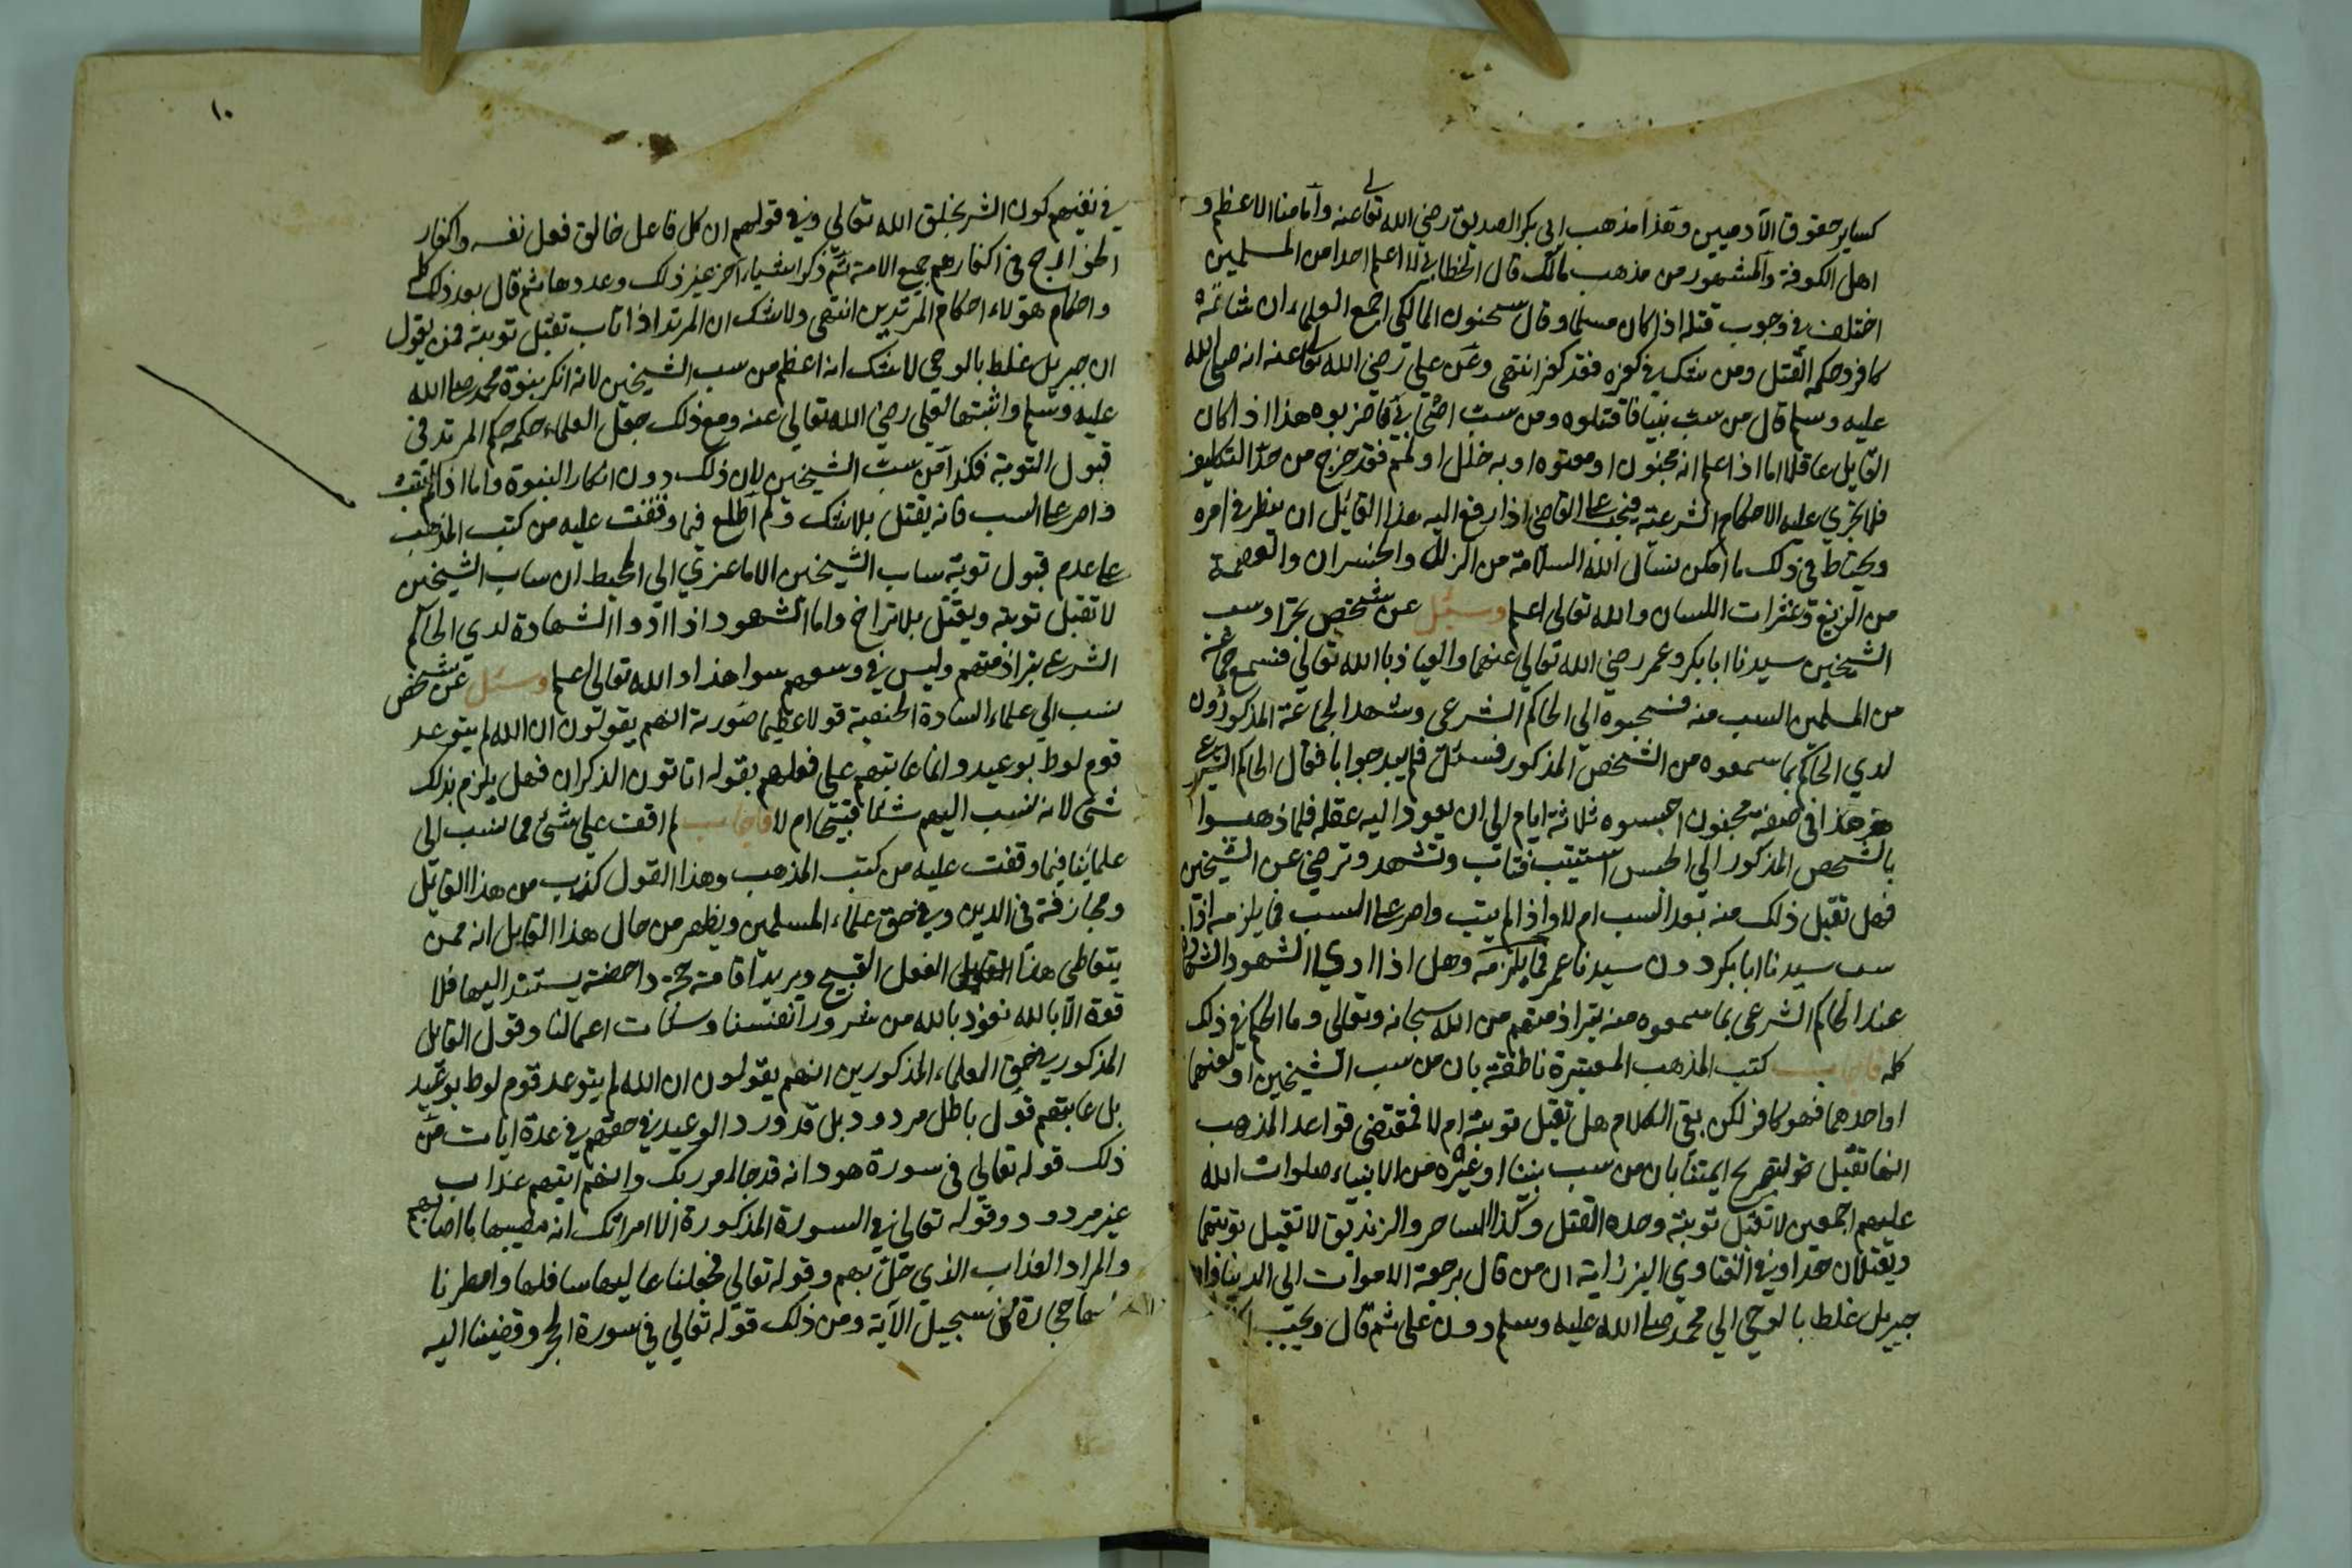 كساير حقوق الآدميين وهذا مذهب ابي بكر الصديق رضي الله تعالى عنه وامامنا الاعظم و
اهل الكوفة والمشهور من مذهب مالك قال الخطابي لا اعلم احدا من المسلمين
اختلف في وجوب قتله اذا كان مسلما وقال سحنون المالكي اجمع العلماء ان شاتمه
كافر وحكمه القتل ومن شك في كفره فقد كفر انتهى وعن علي رضي الله تعالى عنه انه صلى الله
عليه وسلم قال من سب نبيا فاقتلوه ومن سب اصحابي فاضربوه هذا اذا كان
القايل عاقلا اما اذا علم انه مجنون او معتوه او به خلل او لمم فقد خرج من حد التكليف
فلا يجري عليه الاحكام الشرعية فيجب على القاضي اذا رفع اليه هذا القائل ان ينظر في امره
ويحتاط في ذلك ما امكن نسال الله السلامة من الزلل والخسران والعصمة
من الزيغ وعثرات اللسان والله تعالى اعلم وسئل عن شخص تجرا وسب
الشيخين سيدنا ابا بكر وعمر رضي الله تعالى عنهما والعياذ بالله تعالى فسمع جماعة
من المسلمين السب منه فسحبوه الى الحاكم الشرعي وشهد الجماعة المذكورون
لدي الحاكم بما سمعوه من الشخص المذكور فسئل فلم يبد جوابا فقال الحاكم الشرعي
هذا في صفة مجنون احبسوه ثلاثة ايام الى ان يعود اليه عقله فلما ذهبوا
بالشخص المذكور الى الحبس استتيب فتاب وتشهد وترضى عن الشيخين
فهل تقبل ذلك منه بعد السب ام لا واذا لم يتب واصر على السب فما يلزمه اذا
سب سيدنا ابا بكر دون سيدنا عمر فما يلزمه وهل اذا ادي الشهود الشهادة
عند الحاكم الشرعي بما سمعوه منه تبرا ذمتهم من الله سبحانه وتعالى وما الحكم في ذلك
كله فاجاب كتب المذهب المعتبرة ناطقة بان من سب الشيخين او لعنهما
او احدهما فهو كافر لكن بقي الكلام هل تقبل توبته ام لا فمقتضى قواعد المذهب
انها تقبل لتصريح ايمتنا بان من سب نبينا او غيره من الانبياء صلوات الله
عليهم اجمعين لا تقبل توبته وحده القتل وكذا الساحر والزنديق لا تقبل توبتهما
ويقتلان حدا وفي الفتاوي البزازية ان من قال برجعة الاموات الى الدنيا وان
جبريل غلط بالوحي الي محمد صلى الله عليه وسلم دون علي ثم قال ويجب
١٠
في نفيهم كون الشر بخلق الله تعالي وفي قولهم ان كل فاعل خالق فعل نفسه واكفار
الخوارج في اكفارهم جميع الامة ثم ذكر اشياء آخر غير ذلك وعددها ثم قال بعد ذلك كله
واحكام هؤلاء احكام المرتدين انتهى ولا شك ان المرتد اذا تاب تقبل توبته فمن يقول
ان جبريل غلط بالوحي لا شك انه اعظم من سب الشيخين لانه انكر بنوة محمد صلى الله
عليه وسلم واثبتها لعلي رضي الله تعالى عنه ومع ذلك جعل العلماء حكمه حكم المرتد في
قبول التوبة فكذا من سب الشيخين لان ذلك دون انكار النبوة واما اذا لم يتب
واصر على السب فانه يقتل بلا شك ولم اطلع فيما وقفت عليه من كتب المذهب
على عدم قبول توبة ساب الشيخين الا ما عزي الى المحيط ان ساب الشيخين
لا تقبل توبته ويقتل بلا تراخ واما الشهود اذا ادوا الشهادة لدي الحاكم
الشرعي تبرا ذمتهم وليس في وسعهم سوا هذا والله تعالى اعلم وسئل عن شخص
نسب الي علماء السادة الحنفية قولا عظيما صورته انهم يقولون ان الله لم يتوعد
قوم لوط بوعيد وانما عاتبهم على فعلهم بقوله اتاتون الذكران فهل يلزم بذلك
شئ لانه نسب اليهم شيئا قبيحا ام لا فاجاب لم اقف علي شئ مما نسب الى
علمائنا فيما وقفت عليه من كتب المذهب وهذا القول كذب من هذا القائل
ومجازفة في الدين وفي حق علماء المسلمين ويظهر من حال هذا القايل انه ممن
يتعاطى هذا الفعل القبيح ويريد اقامة حجة داحضة يستند اليها فلا
قوة الا بالله نعوذ بالله من شرور انفسنا وسيئات اعمالنا وقول القايل
المذكور في حق العلماء المذكورين انهم يقولون ان الله لم يتوعد قوم لوط بوعيد
بل عاتبهم قول باطل مردود بل قد ورد الوعيد في حقهم في عدة ايات من
ذلك قوله تعالي في سورة هود انه قد جاء امر ربك وانهم اتيهم عذاب
غير مردود وقوله تعالى في السورة المذكورة الا امراتك انه مصيبها ما اصابهم
والمراد العذاب الذي حل بهم وقوله تعالى فجعلنا عاليها سافلها وامطرنا
حجارة من سجيل الآية ومن ذلك قوله تعالي في سورة الحجر وقضينا اليه